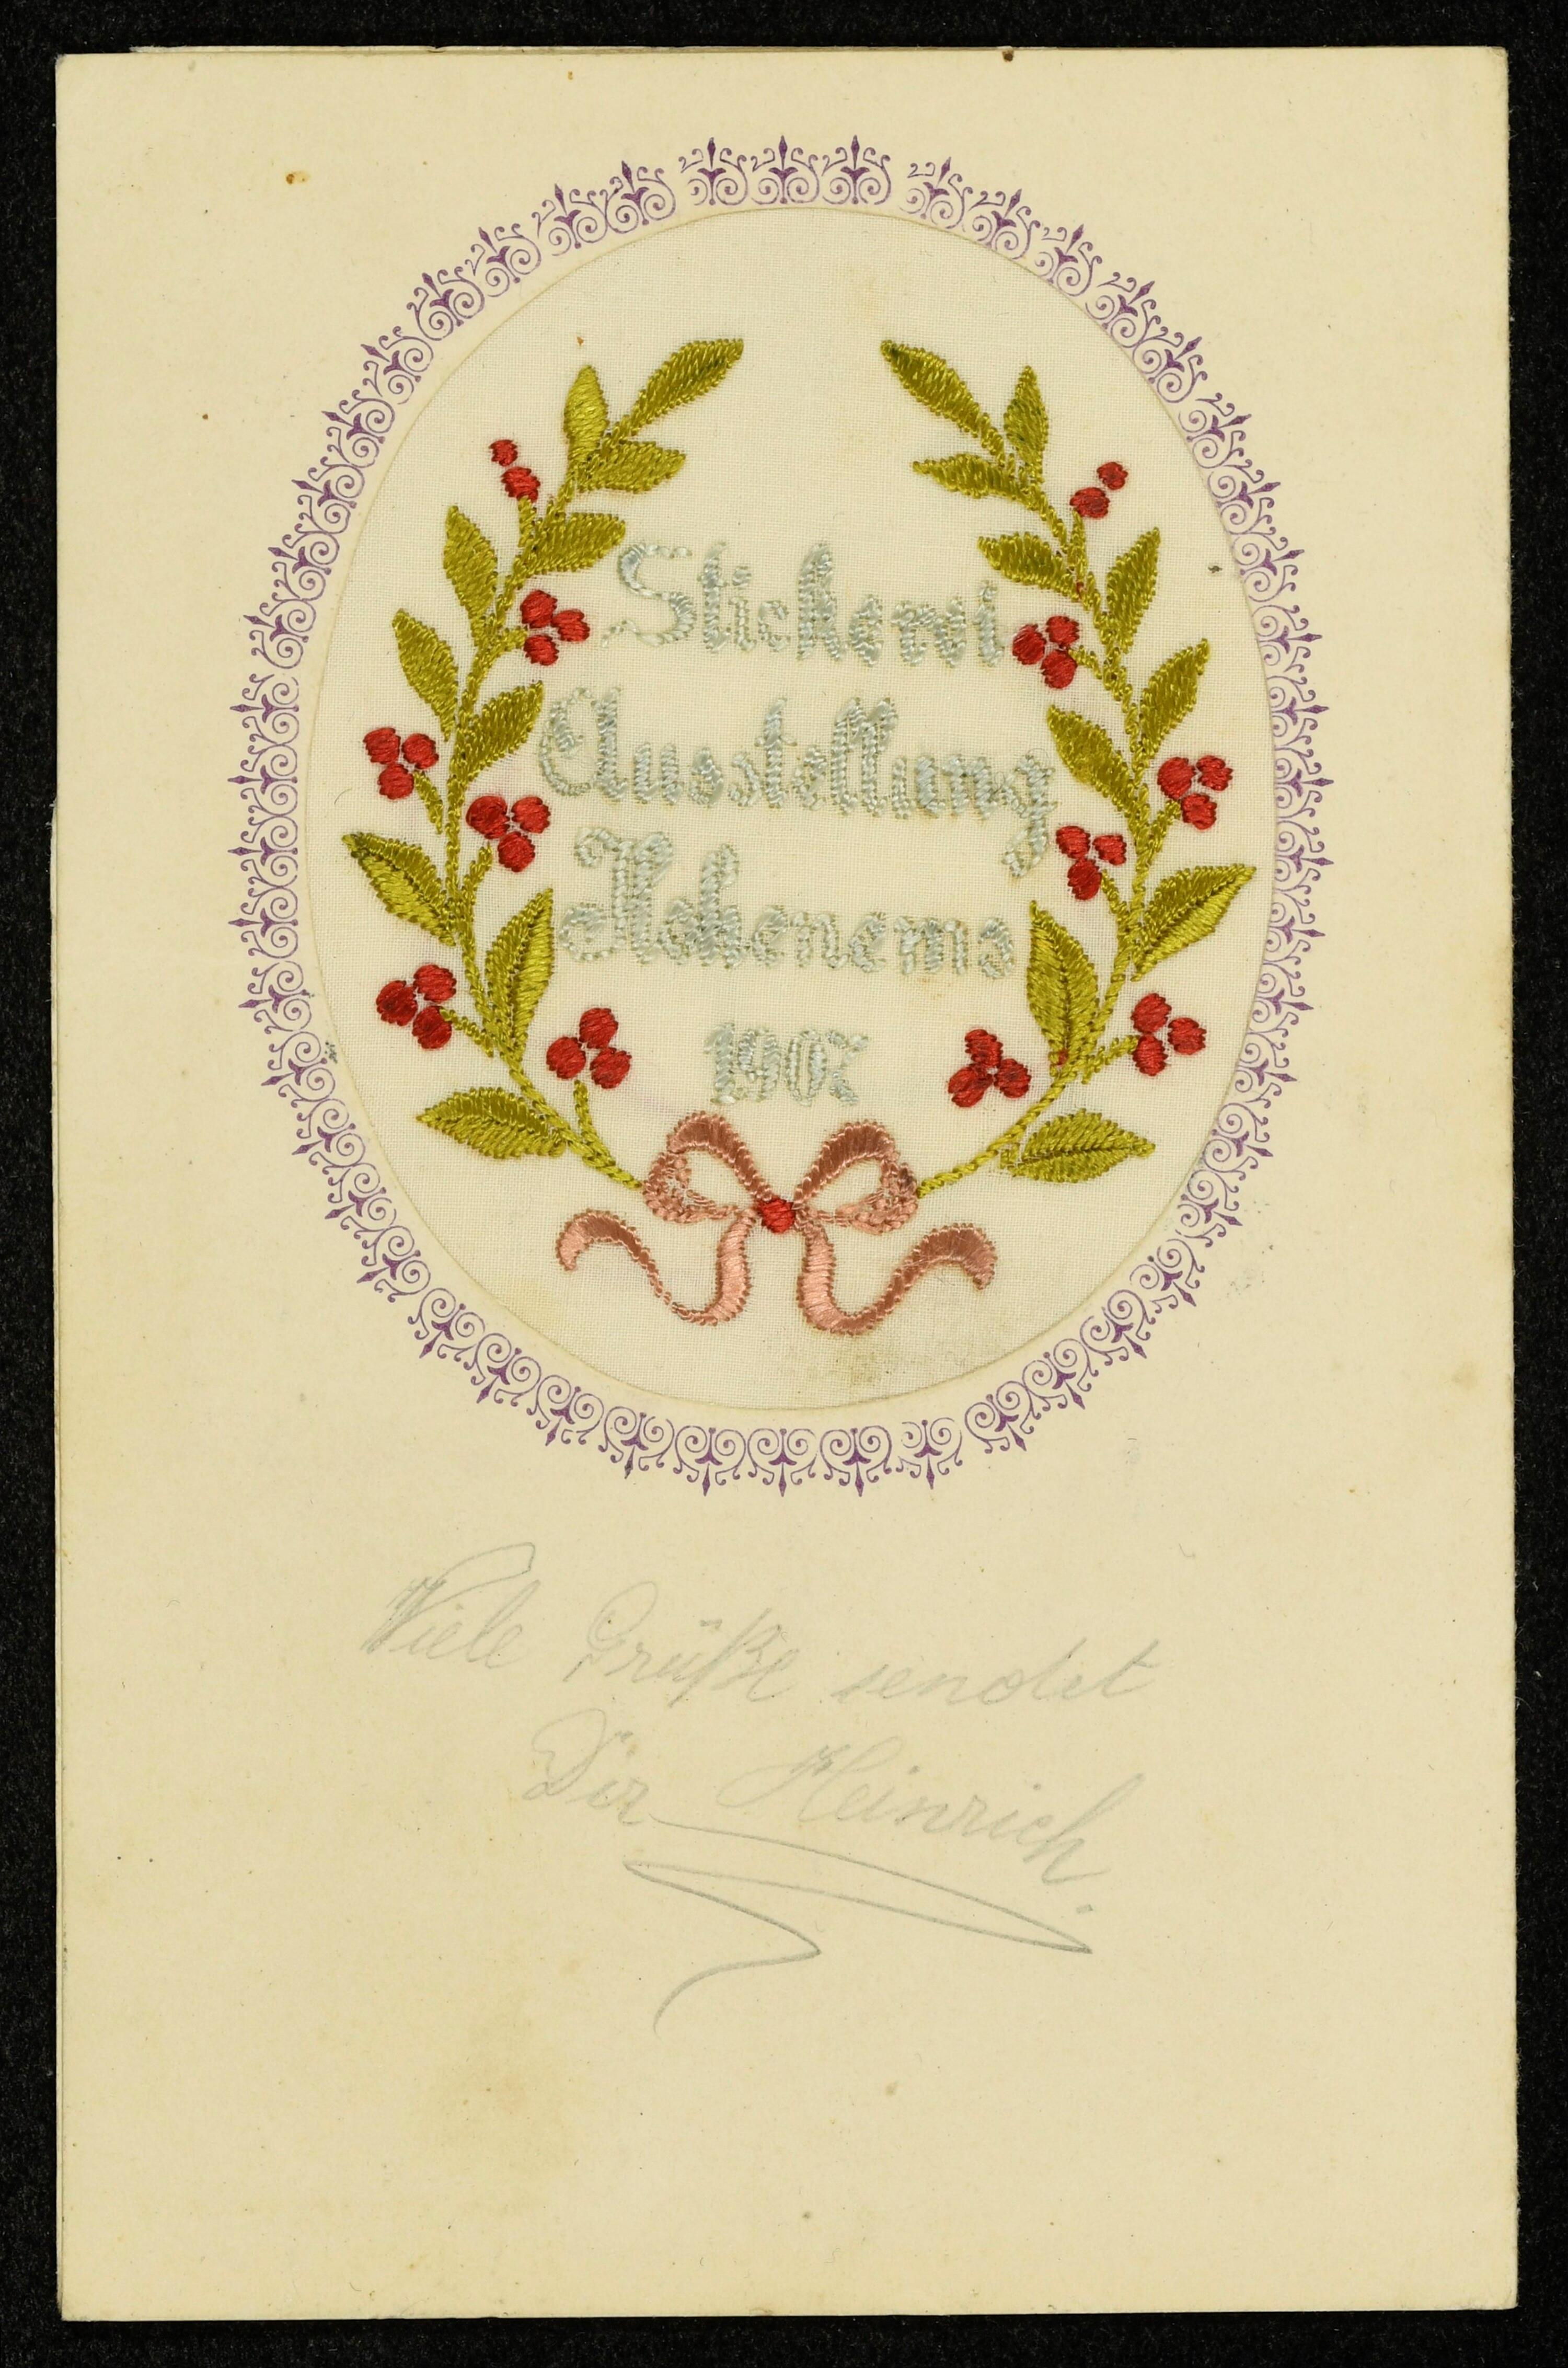 Stickerei
Ausstellung
Hohenems
1907
Viele Grüße sendet
Dir Heinrich.